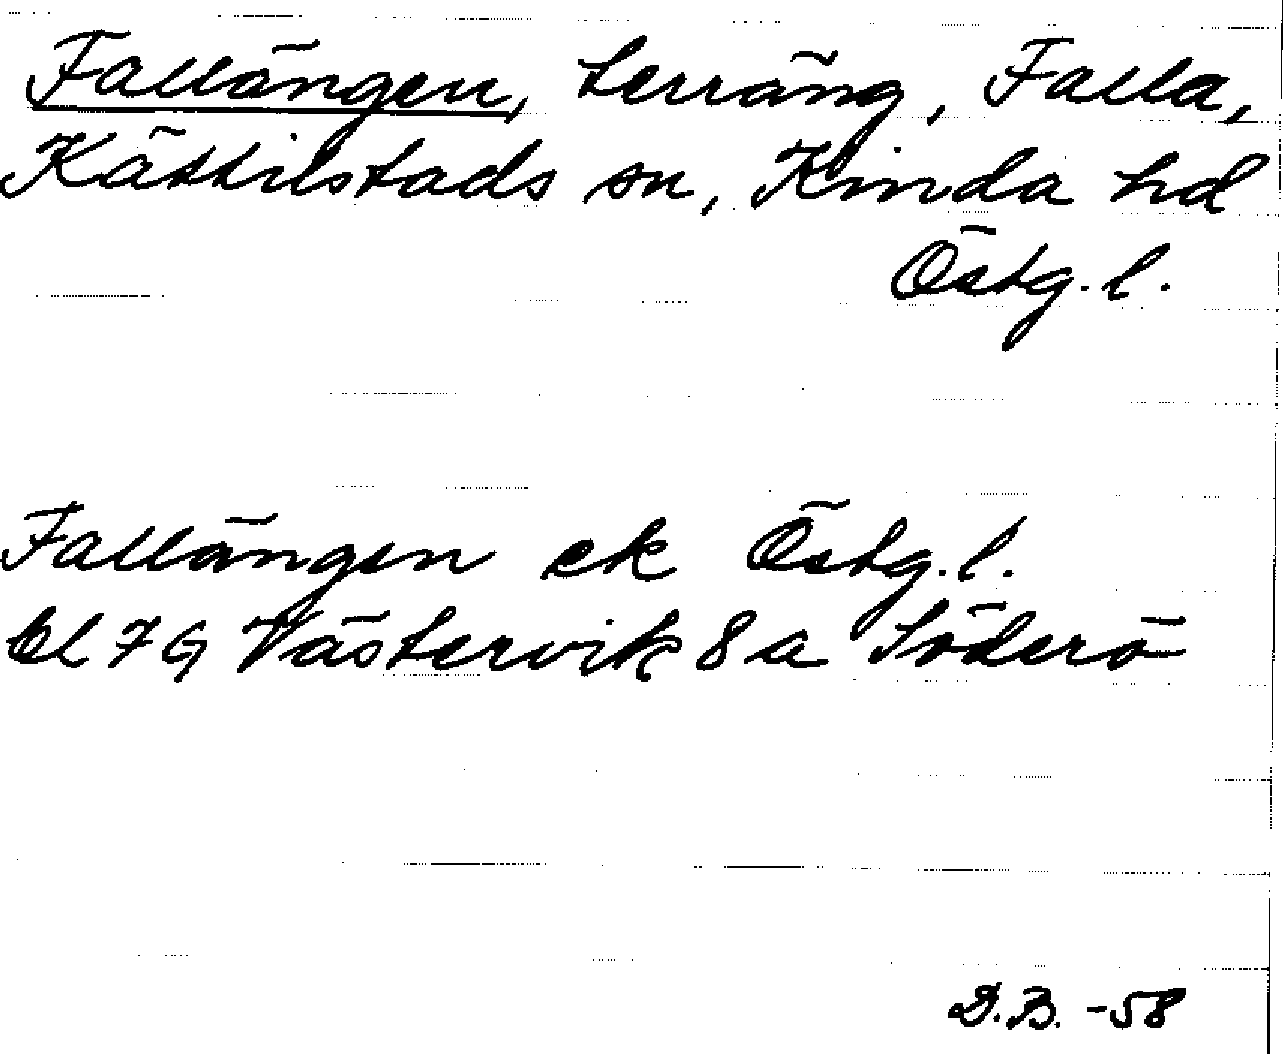 Fallängen, terräng, Falla,
Kättilstads sn, Kinda hd
Östg. l.
Fallängen ek Östg. l.
bl 7 G Västervik 8 a Söderö
D.B. -58